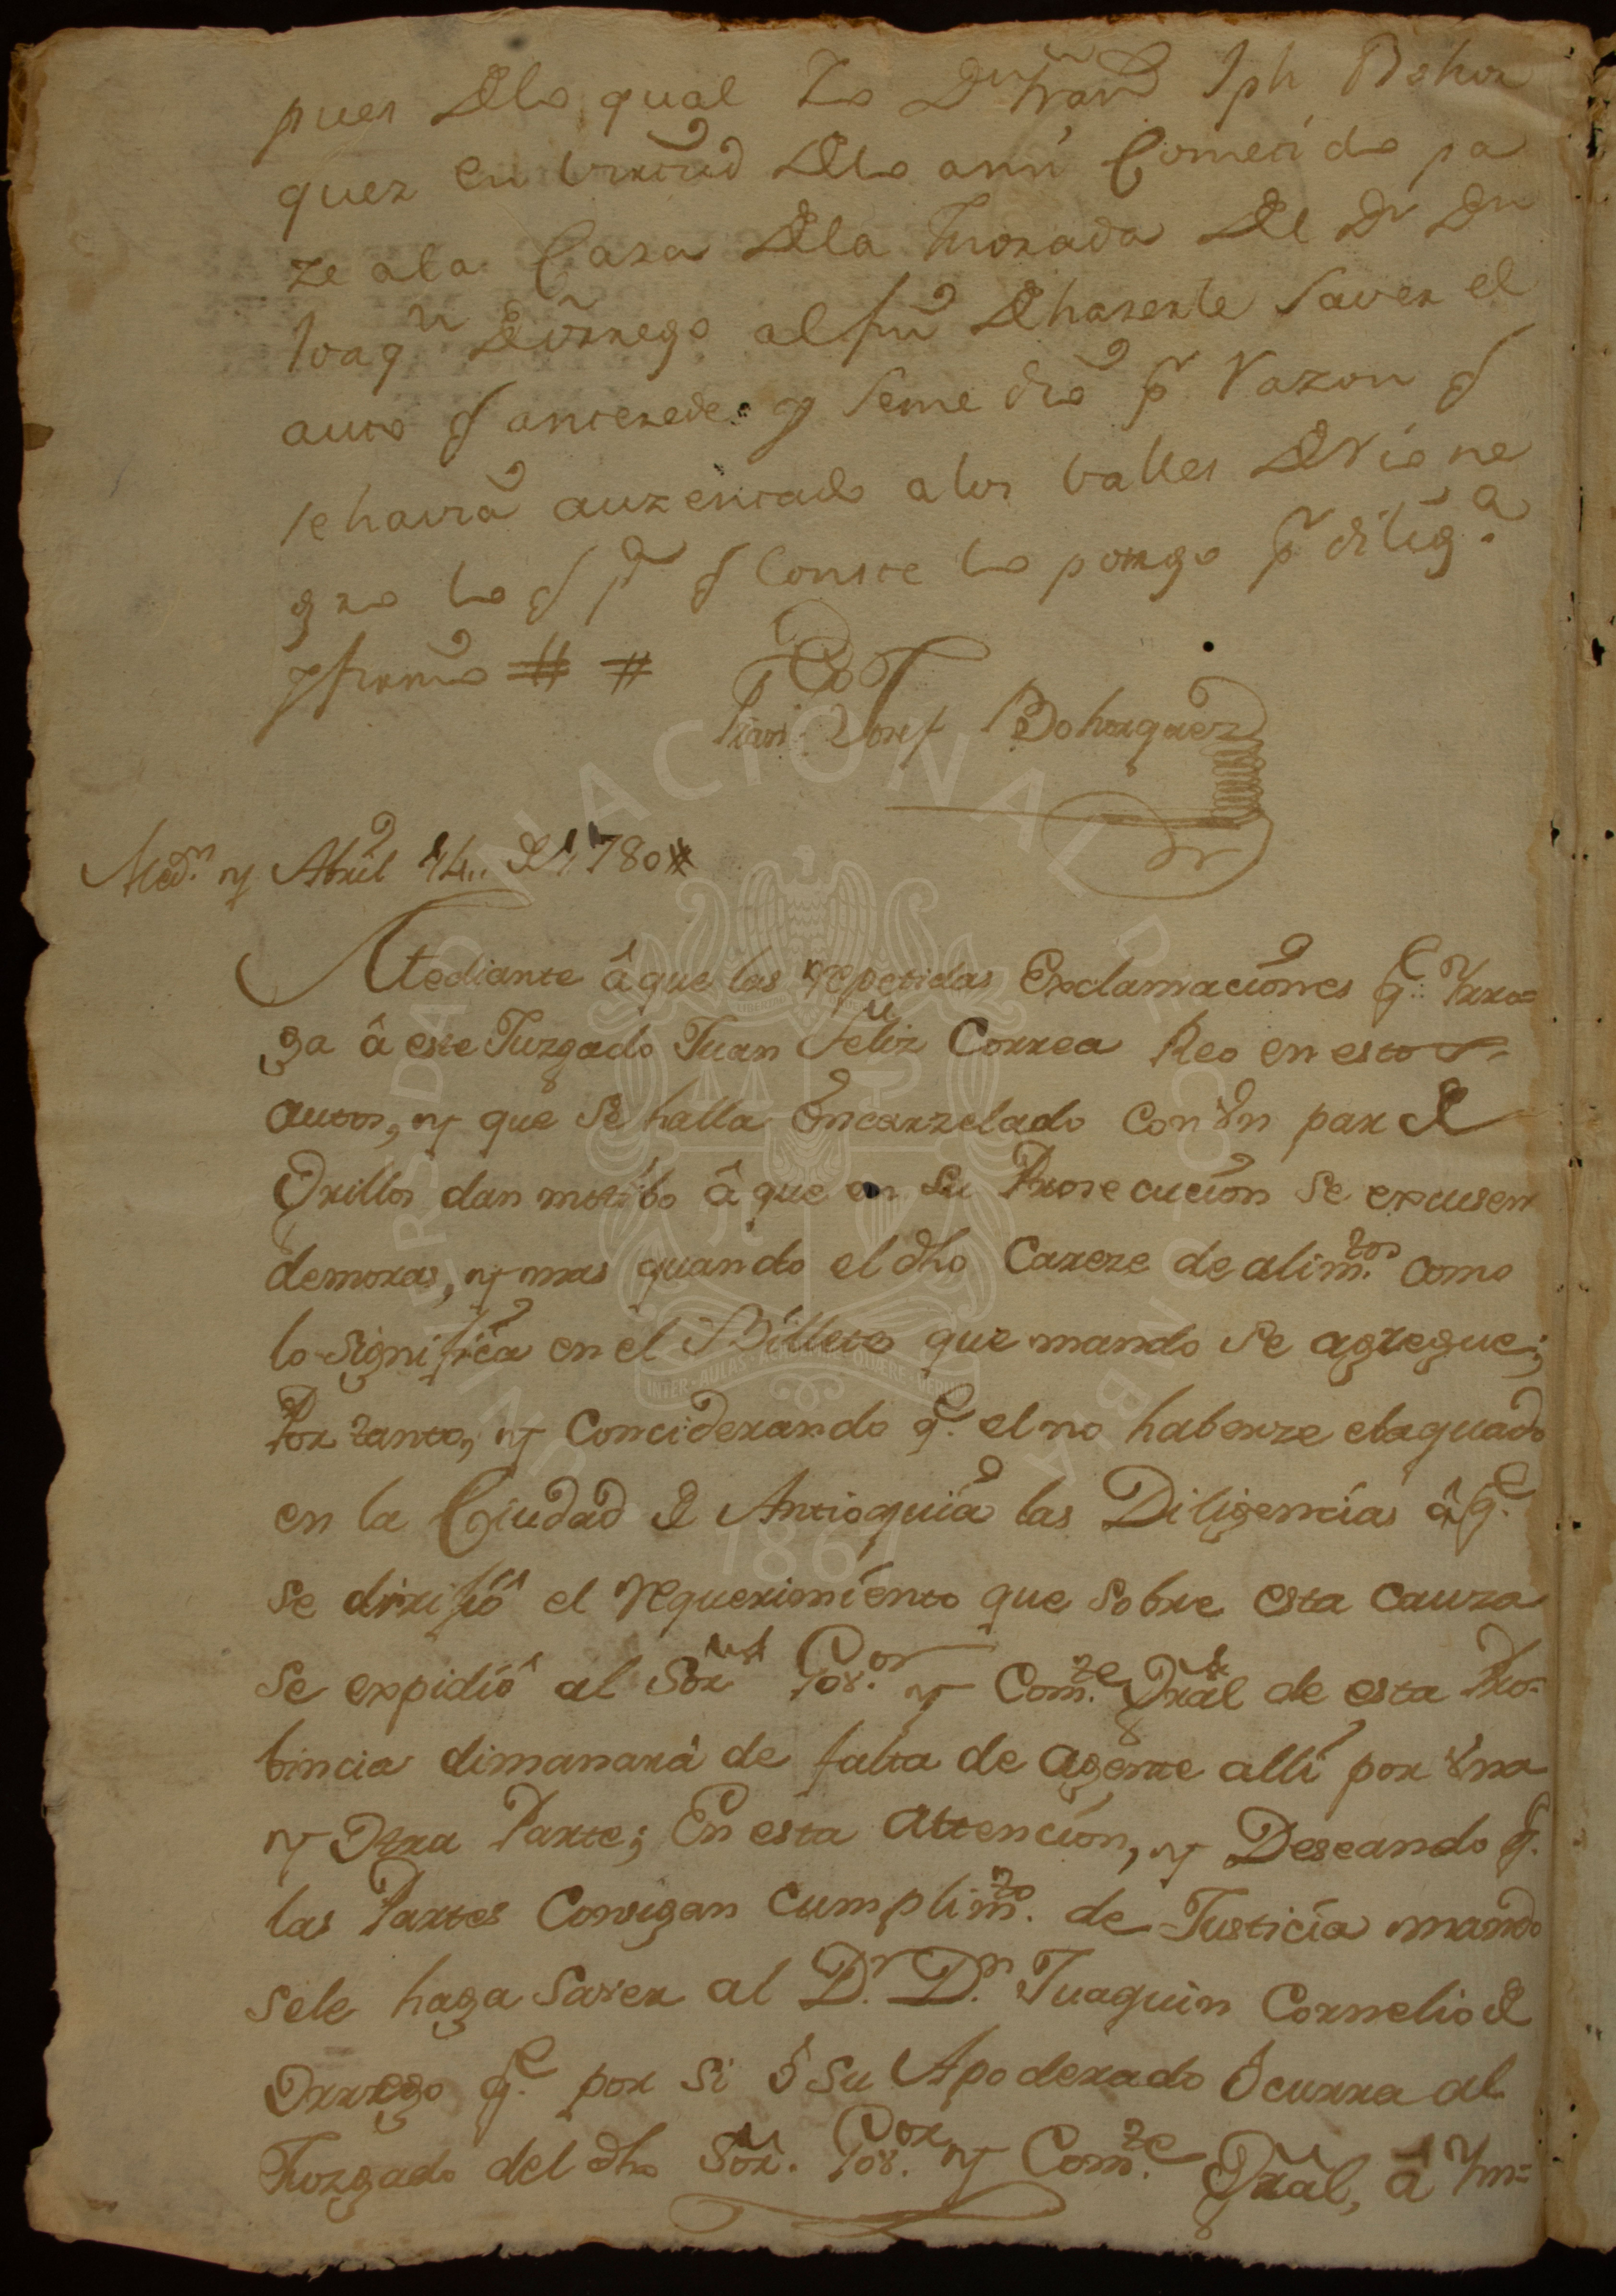 pues de lo qual Yo Dn Fran.co Jph Bohor
quez en birtud de lo a mi Cometido pa
ze a la Casa de la morada de el Dr Dn
Joaqn de Orrego al fin de haserle saver el
auto q antesede y se me dio pr razon q
se havia auzentado a los valles de Rione
gro lo q pa q Conste lo pongo pr diliga
y firmo # #
Fran Josef Bohorquez
Medn y Abril 14,, de 1780 #
Atediante â que las repetidas Exclamaciones q.e Yrro=
ga â este Juzgado Juan Feliz Correa Reo en estos
autos, y que se halla encarzelado con Vn par de
Grillos dan motibo â que en su Prosecucion se expusen
demoras, y mas quando el dho Careze de alim.tos como
lo significa en el Billete que mando se agregue;
Por tanto, y Conciderando q.e el no haberze ebaquado
en la Ciudad de Antioquia las Diligencias â q.e
se dirifió el requerimiento que sobre esta cauza
se expidió al Sor Gov.or y Com.te Gral de esta Pro-
bincia dimanará de falta de agente alli por Vna
y Otra Parte; En esta attencion, y Deseando q.e
las Partes Consigan cumplim.to de Justicia mando
se le haga Saver al D.r D.n Juaquin Cornelio de
Orrego q.e por si ó su Apoderado Ocurra al
Juzgado del dho Sor. Gov.or y Com.te Gral, â Ym=
UNIVERSIDAD NACIONAL DE COLOMBIA
INTER · AULAS · ACADEMIÆ · QUÆRE · VERUM
1867